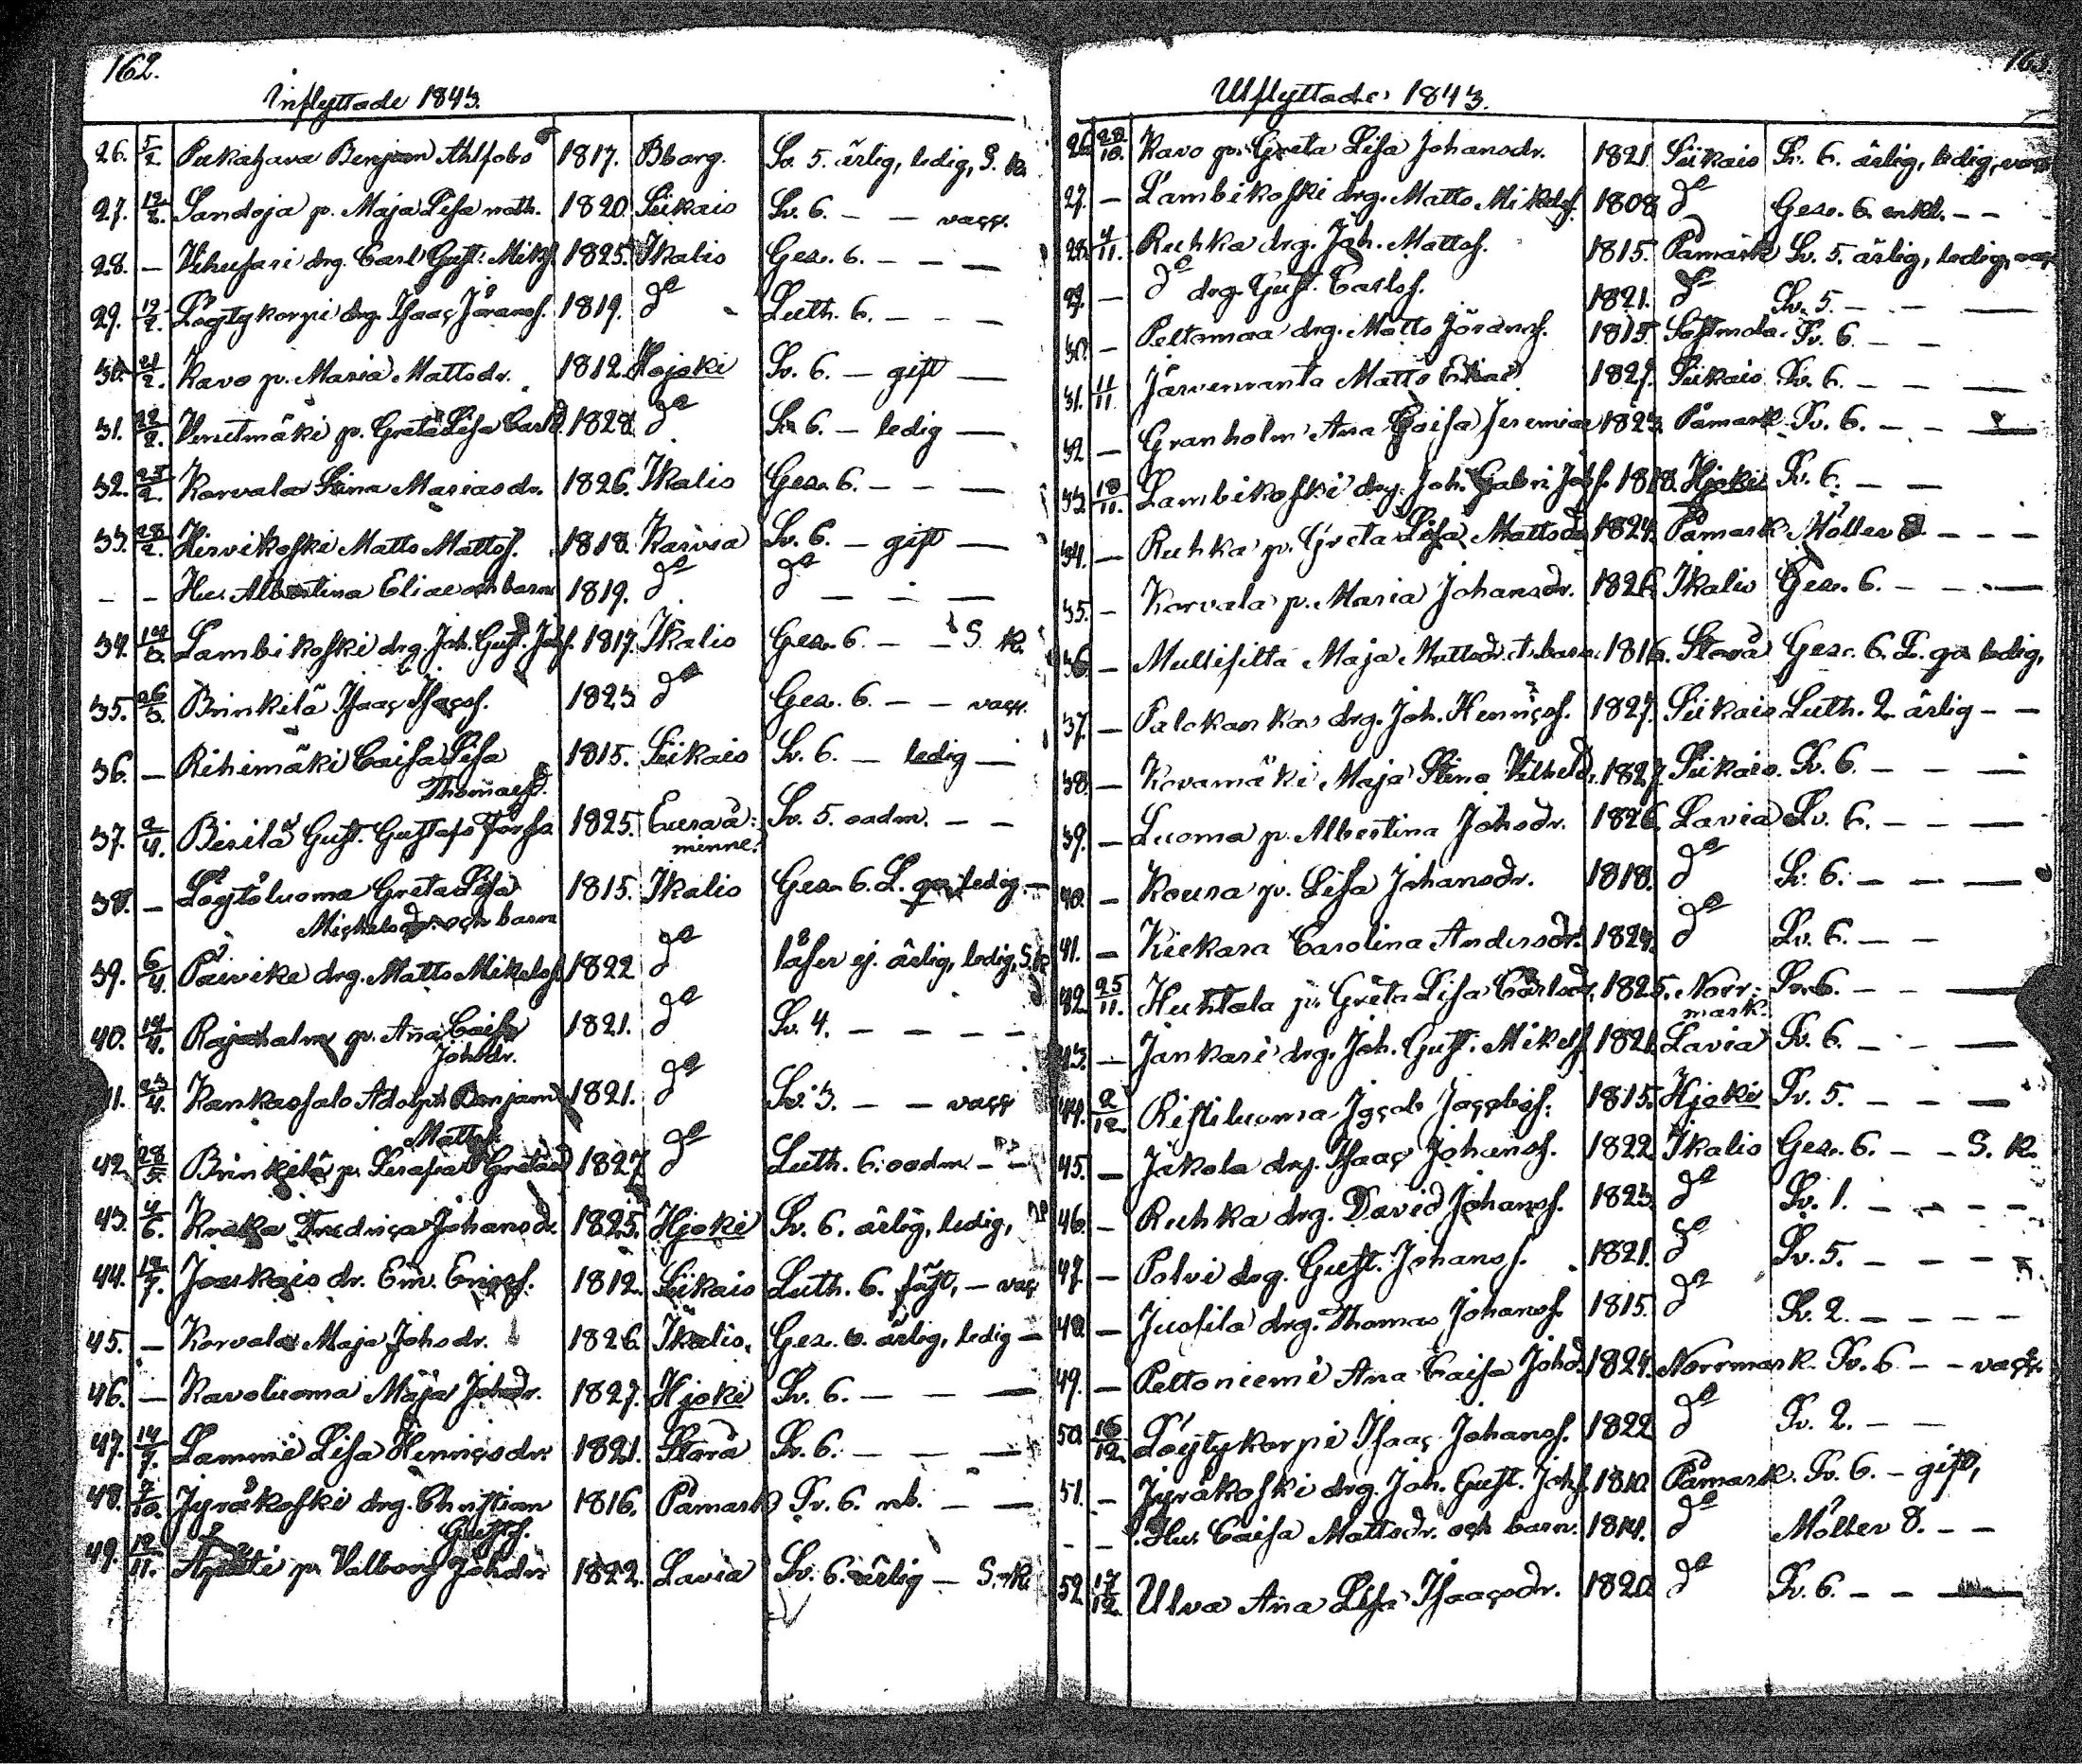 162.
Inflyttade 1843.
26. 5/2. Pukahava Benjam Ahlfobs 1817. Bborg. Sv. 5. ärlig, ledig, S. k.
27. 12/2. Sandoja p. Maja Lisa nath. 1820. Siikais Sv. 6. — — vacc.
28. — Vihusari drg. Carl Gust. Mikf. 1825. Ikalis Gez. 6. — — —
29. 19/2. Löytykorpi drg. Isaac Göransf. 1819. do Luth. 6. — — —
30. 21/2. Ravo p. Maria Mattsdr. 1812. Hojoki Sv. 6. — gift —
31. 22/2. Venetmäki p. Greta Lisa Carld 1828. do Sv. 6. — ledig —
32. 25/2. Korvala Stina Mariasdr. 1826. Ikalis Gez. 6. — — —
33. 28/2. Hirvikoski Matts Mattsf. 1818. Karvia Sv. 6. — gift —
— — Hu. Albertina Eliae och barn 1819. do do — — —
34. Lambikoski drg. Joh. Gust. Johf. 1817. Ikalis Gez. 6. — — S. k.
35. 26/3. Brinkilä Isaac Isacsf. 1823 do Gez. 6. — — vacc.
36. — Rihimäki Caisa Lisa 1815. Siikais Sv. 6. — ledig —
Thomaesd.
37. 2/4. Birilä Gust. Gustafs 1825. Euraå: Sv. 5. oadm. — —
minne.
38. — Löytöluoma Greta Lisa 1815. Ikalis Gez. 6. L. ledig —
Michelsdr. och barn
39. 6/4. Päivike drg. Matts Mikelsf. 1822 do läser ej. ärlig, ledig, S. k.
40. 14/4. Rajahalm p. Aña Caisa 1821. do Sv. 4. — — — —
Johsdr.
41. 23/4. Kankassalo Adolph Benjam 1821. do Sv. 3. — — vacc
Mattsf.
42. 28/5. Brinkilä p. Serafia Gretasd 1827 do Luth. 6. oadm — —
43. 4/6. Kraka Fredrica Johansdr. 1825. Hjoki Sv. 6. ärlig, ledig,
44. 12/7. Jouskais dr. Em. Ericsf. 1812. Siikais Luth. 6. fäst, — vac
45. — Korvala Maja Johsdr. 1826. Ikalis. Gez. 6. ärlig, ledig —
46. — Ravoluoma Maja Johdr. 1827. Hjoki Sv. 6. — — —
47. 14/7. Lammi Lisa Henricsdr. 1821. Storå Sv. 6. — — —
48. 7/10. Jyräkoski drg. Christian 1816. Påmark Sv. 6. nb. — —
Gustfsf.
49. 12/11. p. Valborg Johdr. 1822. Lavia Sv. 6. ärlig — S. k.
163.
Utflyttade 1843.
26. 28/10. Ravo p. Greta Lisa Johansdr. 1821. Siikais Sv. 6. ärlig, ledig, vacc
27. — Lambikoski drg. Matts Mikelsf. 1808 do Gez. 6. enkl. — —
28. 4/11. Ruhka drg. Joh. Mattsf. 1815. Påmark Sv. 5. ärlig, ledig, vacc
29. — do drg. Gust. Carlsf. 1821. do Sv. 5. — — —
30. — Peltomaa drg. Matts Göransf. 1815. Sastmola. Sv. 6. — —
31. 11/11. Järvenranta Matts Eliae 1827. Siikais Sv. 6. — — —
32 — Granholm Aña Caisa Jeremiae 1823. Påmark Sv. 6. — — —
33. 18/11. Lambikoski drg. Joh. Gabr. Johf. 1818. Hjoki Sv. 6. — —
34. — Ruhka p. Greta Lisa Mattsdr 1824. Påmark Möller 8. — — —
35. — Korvala p. Maria Johansdr. 1826. Ikalis Gez. 6. — — —
36. — Multisilta Maja Mattsdr. et barn. 1816. Storå Gez. 6. L. ledig,
37. — Palokankas drg. Joh. Henricsf. 1827. Siikais Luth. 2. ärlig — —
38. — Kovamäki Maja Stina Vilhelmd. 1827. Siikais. Sv. 6. — — —
39. — Luoma p. Albertina Johsdr. 1826. Lavia Sv. 6. — — —
40. — Koura p. Lisa Johansdr. 1818. do Sv. 6. — — —
41. — Kiekara Carolina Andersdr. 1824. do Sv. 6. — —
42. 25/11. Huhtala p. Greta Lisa Carlsdr. 1825. Norr- Sv. 6. — —
mark.
43. — Jankari drg. Joh. Gust. Mikelsf 1821. Lavia Sv. 6. — — —
44. 2/12. Ristiluoma Jacob Jacobsf. 1815. Hjoki Sv. 5. — — —
45. — Jakola drg. Isaac Johansf. 1822. Ikalis Gez. 6. — — S. k.
46. — Ruhka drg. David Johansf. 1823. do Sv. 1. — — — —
47. — Polvi drg. Gust. Johansf. 1821. do Sv. 5. — — —
48. — Jussila drg. Thomas Johansf. 1815. do Sv. 2. — — — —
49. — Peltoniemi Aña Caisa Johsd. 1824. Norrmark. Sv. 6 — — vacc.
50. 16/12. Löytykorpi Isaac Johansf. 1822. do Sv. 2. — —
51. — Jyräkoski drg. Joh. Gust. Johf. 1810. Påmark. Sv. 6. — gift,
— — Hu. Caisa Mattsdr. och barn. 1814. do Möller 8. — —
52. 17/12. Ulva Aña Lisa Isaacsdr. 1820. do Sv. 6. — — —